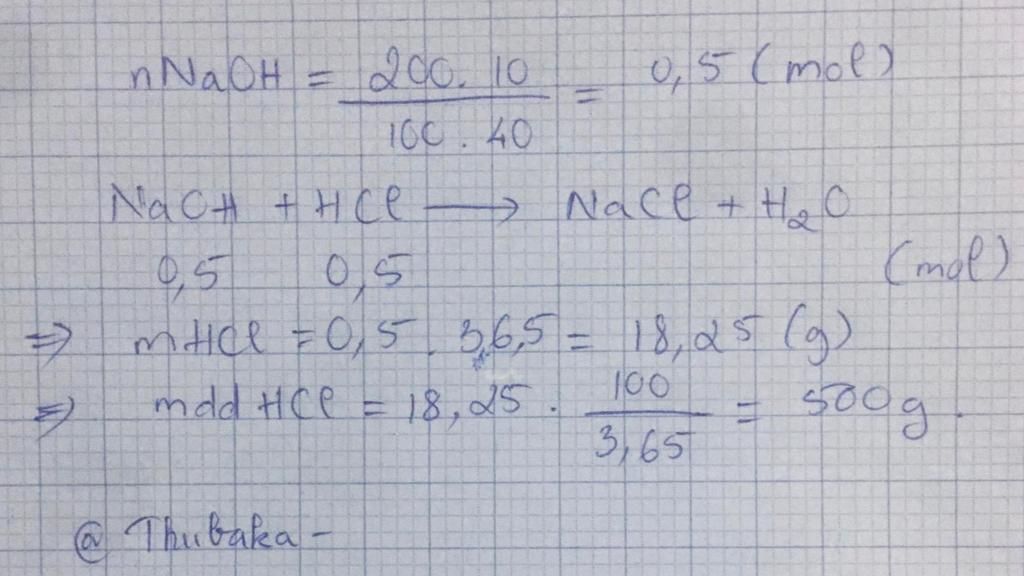 nNaOH = 200. 10 / 100 . 40 = 0,5 (mol)
NaOH + HCl → NaCl + H₂O
0,5 0,5 (mol)
⇒ mHCl = 0,5 . 36,5 = 18,25 (g)
⇒ mdd HCl = 18,25 . 100 / 3,65 = 500g.
@ Thubaka -